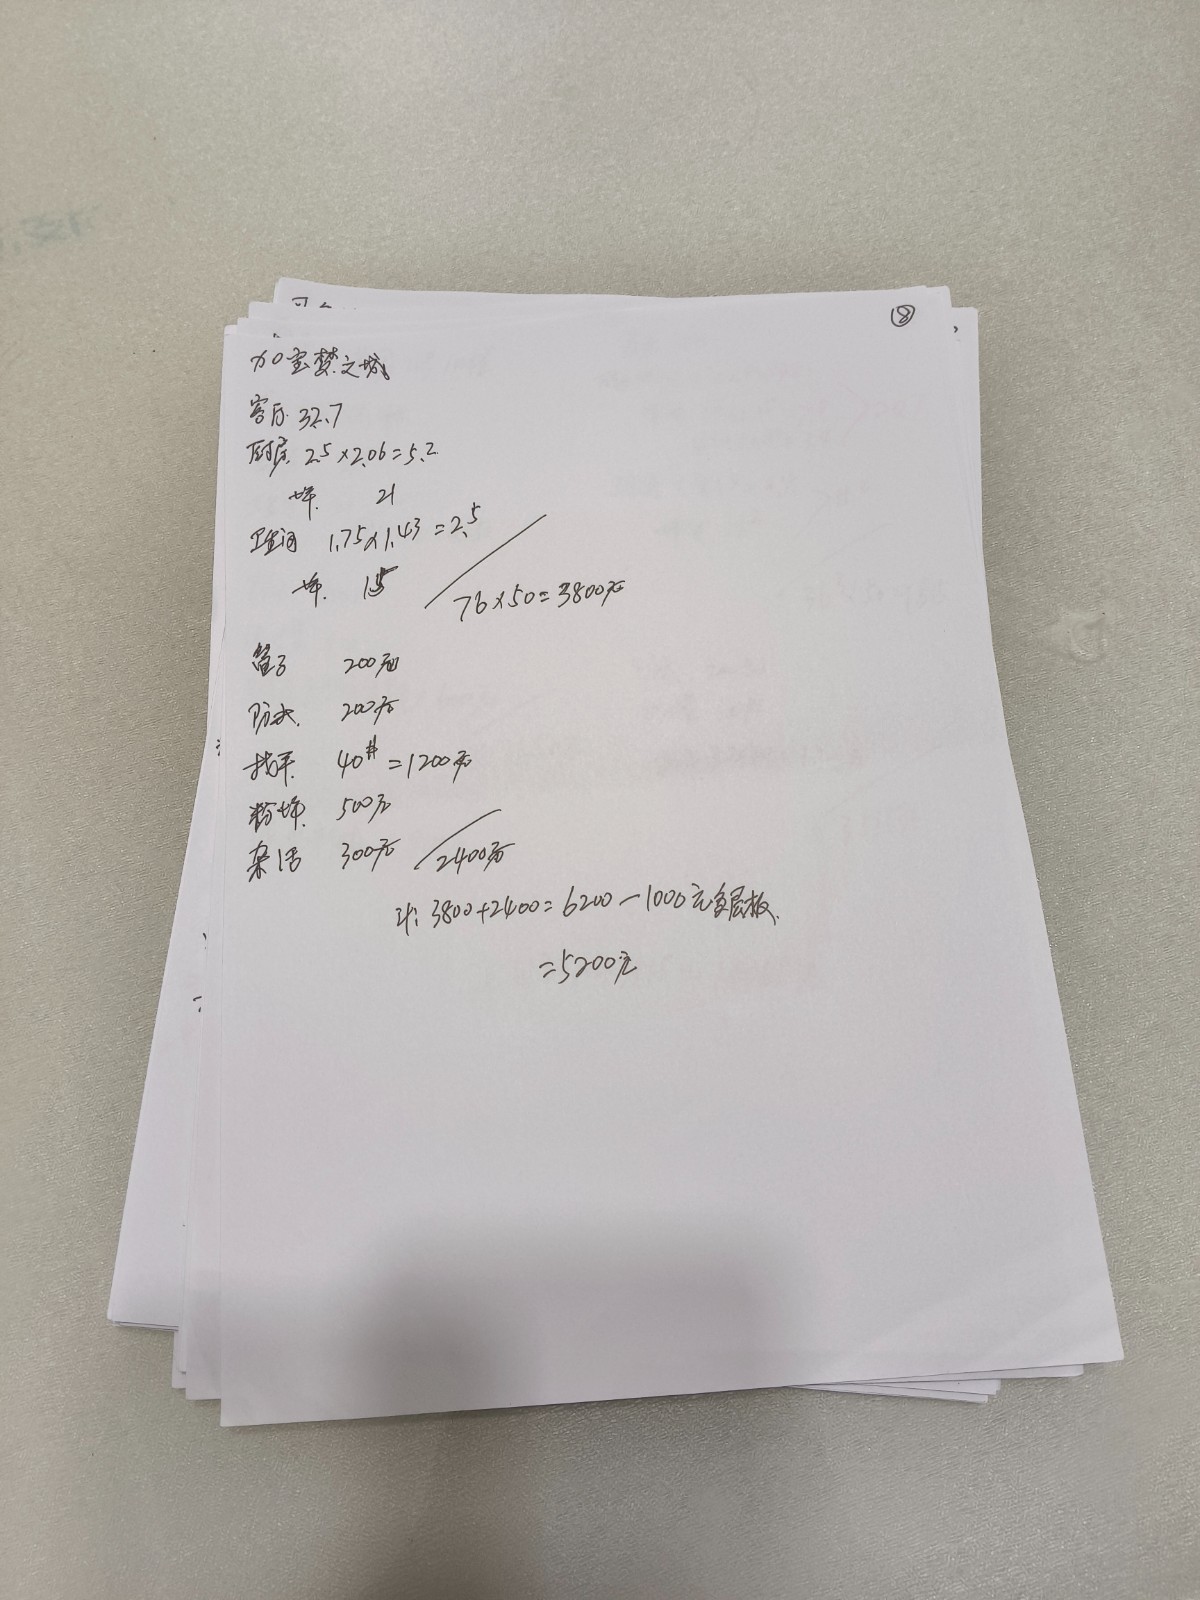 ⑧
加宝梦之城
客厅 32.7
厨房 2.5×2.06=5.2
墙 21
卫生间 1.75×1.43=2.5
墙 15
76×50=3800元
管子 200元
防水 200元
找平 40#=1200元
粉墙 500元
杂活 300元
2400元
计: 3800+2400=6200-1000元多层板
=5200元